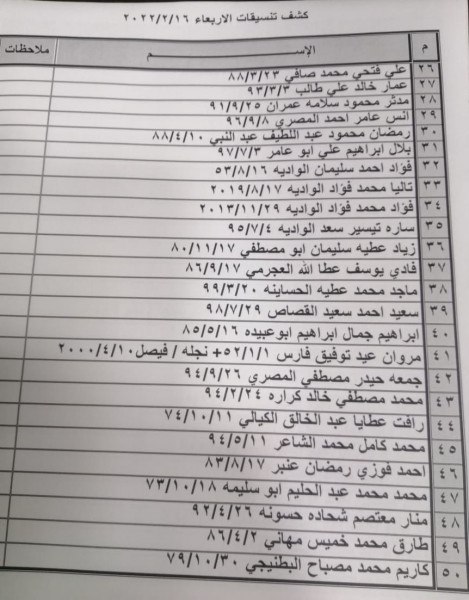 كشف تنسيقات الاربعاء ٢٠٢٢/٢/١٦
م الإســـــم ملاحظات
٢٦ علي فتحي محمد صافي ٨٨/٣/٢٣
٢٧ عمار خالد علي طالب ٩٣/٣/٣
٢٨ مدثر محمود سلامه عمران ٩١/٩/٢٥
٢٩ انس عامر احمد المصري ٩٦/٩/٨
٣٠ رمضان محمود عبد اللطيف عبد النبي ٨٨/٤/١٠
٣١ بلال ابراهيم علي ابو عامر ٩٧/٧/٣
٣٢ فؤاد احمد سليمان الواديه ٥٣/٨/١٦
٣٣ تاليا محمد فؤاد الواديه ٢٠١٩/٨/١٧
٣٤ فؤاد محمد فؤاد الواديه ٢٠١٣/١١/٢٩
٣٥ ساره تيسير سعد الواديه ٩٥/٧/٤
٣٦ زياد عطيه سليمان ابو مصطفي ٨٠/١١/١٧
٣٧ فادي يوسف عطا الله العجرمي ٨٦/٩/١٧
٣٨ ماجد محمد عطيه الحساينه ٩٩/٣/٢٠
٣٩ سعيد احمد سعيد القصاص ٩٨/٧/٢٩
٤٠ ابراهيم جمال ابراهيم ابوعبيده ٨٥/٥/١٦
٤١ مروان عيد توفيق فارس ٥٢/١/١+ نجله / فيصل ٢٠٠٠/٤/١٠
٤٢ جمعه حيدر مصطفي المصري ٩٤/٩/٢٦
٤٣ محمد مصطفي خالد كراره ٩٤/٢/٢٤
٤٤ رافت عطايا عبد الخالق الكيالي ٧٤/١٠/١١
٤٥ محمد كامل محمد الشاعر ٩٤/٥/١١
٤٦ احمد فوزي رمضان عنبر ٨٣/٨/١٧
٤٧ محمد محمد عبد الحليم ابو سليمه ٧٣/١٠/١٨
٤٨ منار معتصم شحاده حسونه ٩٢/٤/٢٦
٤٩ طارق محمد خميس مهاني ٨٦/٤/٢
٥٠ كاريم محمد مصباح البطنيجي ٧٩/١٠/٣٠